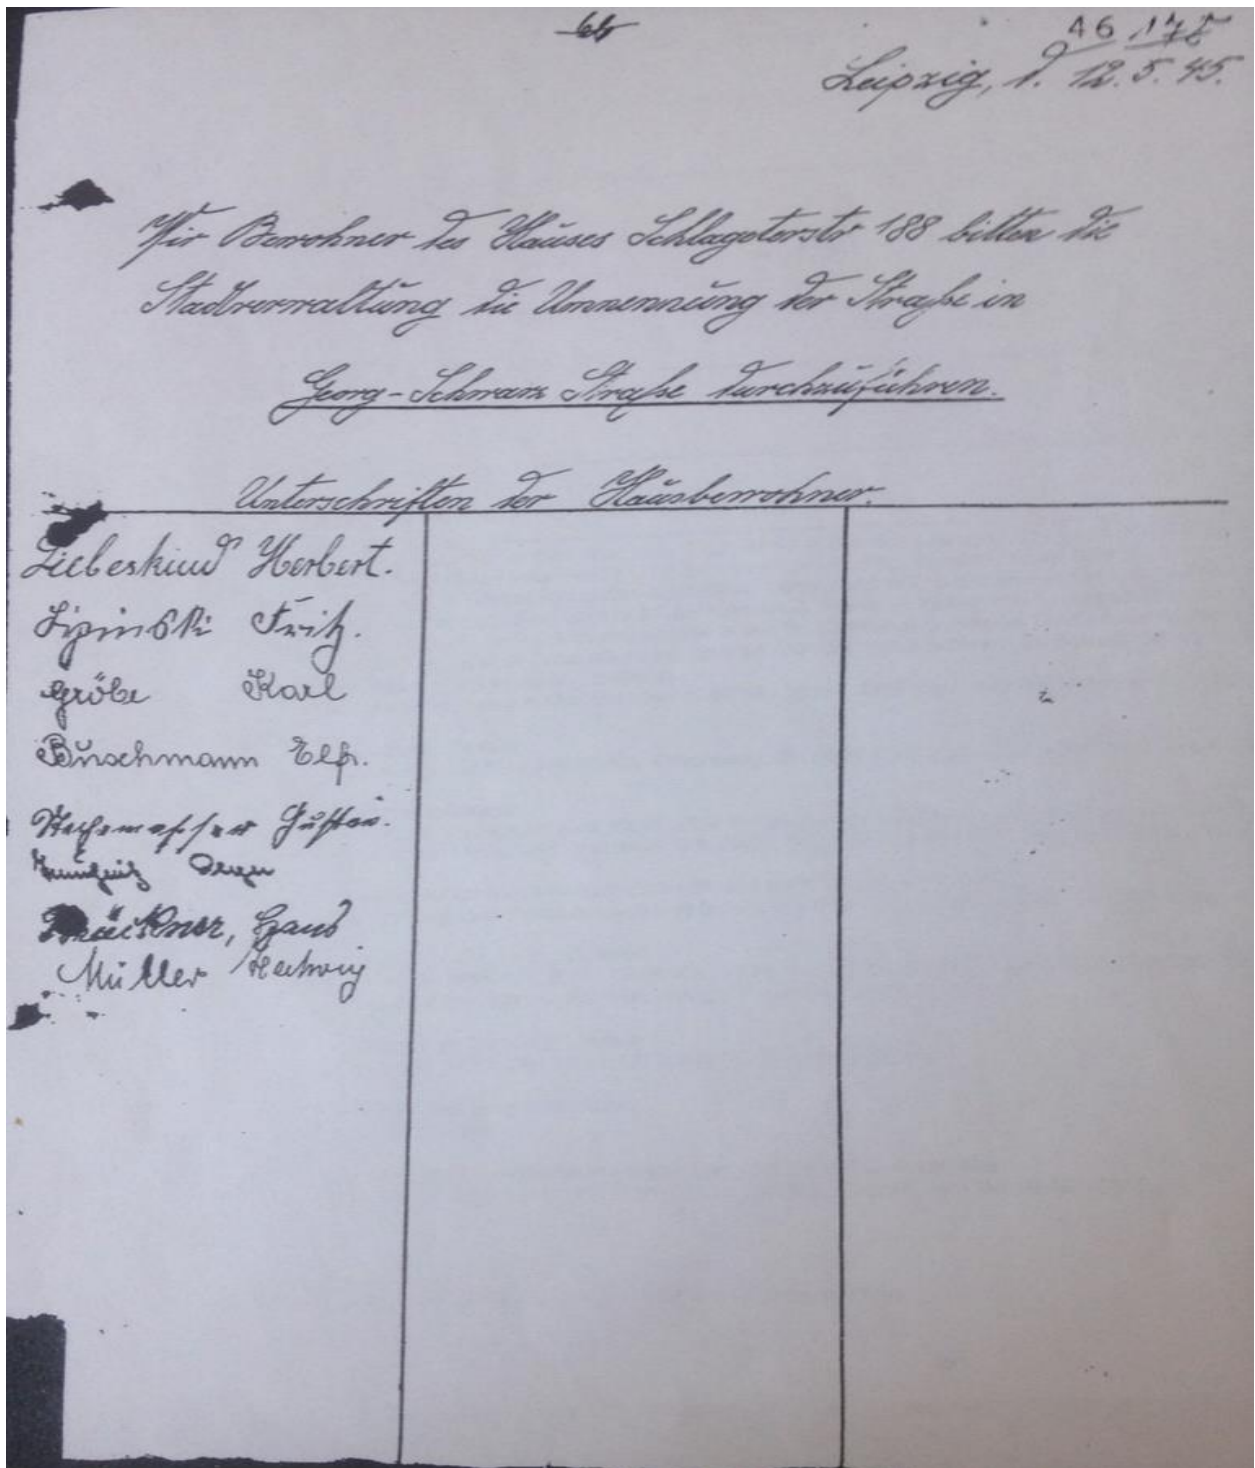 Leipzig, d. 12.5.45.
Wir Bewohner des Hauses Schlageterstr 188 bitten die
Stadtverwaltung die Umnennung der Straße in
Georg-Schwarz Straße durchzuführen.
Unterschriften der Hausbewohner.
Liebeskind Herbert.
Lipinski Fritz.
Gröbe Karl
Buschmann Elfr.
Gustav.
Brückner, Hans
Müller Hedwig